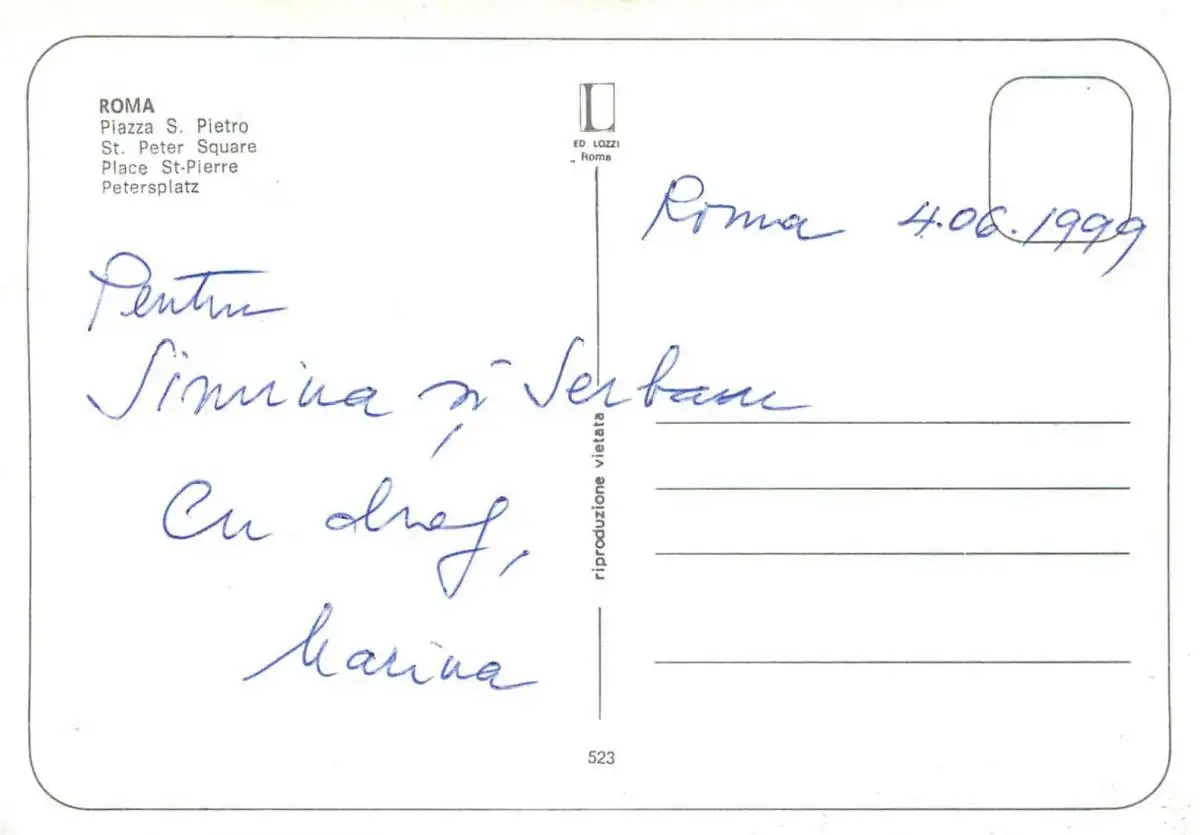 ROMA
Piazza S. Pietro
St. Peter Square
Place St-Pierre
Petersplatz
L
ED LOZZI
Roma
Roma 4.06.1999
Pentru
Simina și Serban
Cu drag,
Marina
riproduzione vietata
523